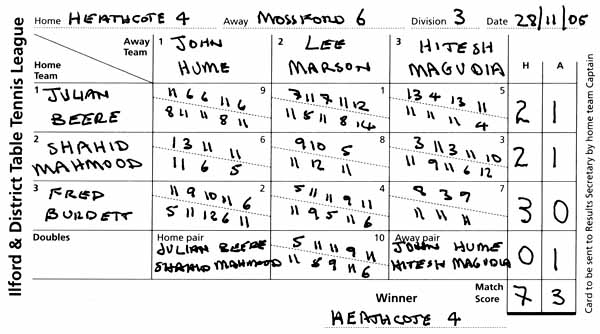 Ilford & District Table Tennis League
Home HEATHCOTE 4 Away MOSSFORD 6 Division 3 Date 28/11/05
Home Team Away Team 1 JOHN HUME 2 LEE MARSON 3 HITESH MAGUDIA H A
1 JULIAN BEERE
9 11 6 6 11 6
8 11 11 8 11
1 7 11 7 11 12
11 5 11 8 14
5 13 4 13 11
11 11 11 4
2 1
2 SHAHID MAHMOOD
6 13 11 11
11 6 5
8 9 10 5
11 12 11
3 3 11 3 11 10
11 9 11 6 12
2 1
3 FRED BURDETT
2 11 9 10 11 6
5 11 12 6 11
4 5 11 11 9 11
11 9 5 11 6
7 8 3 9
11 11 11
3 0
Doubles
Home pair JULIAN BEERE
SHAHID MAHMOOD
10 5 11 11 9 11
11 8 9 11 6
Away pair JOHN HUME
HITESH MAGUDIA
0 1
Match Score 7 3
Winner
HEATHCOTE 4
Card to be sent to Results Secretary by home team Captain